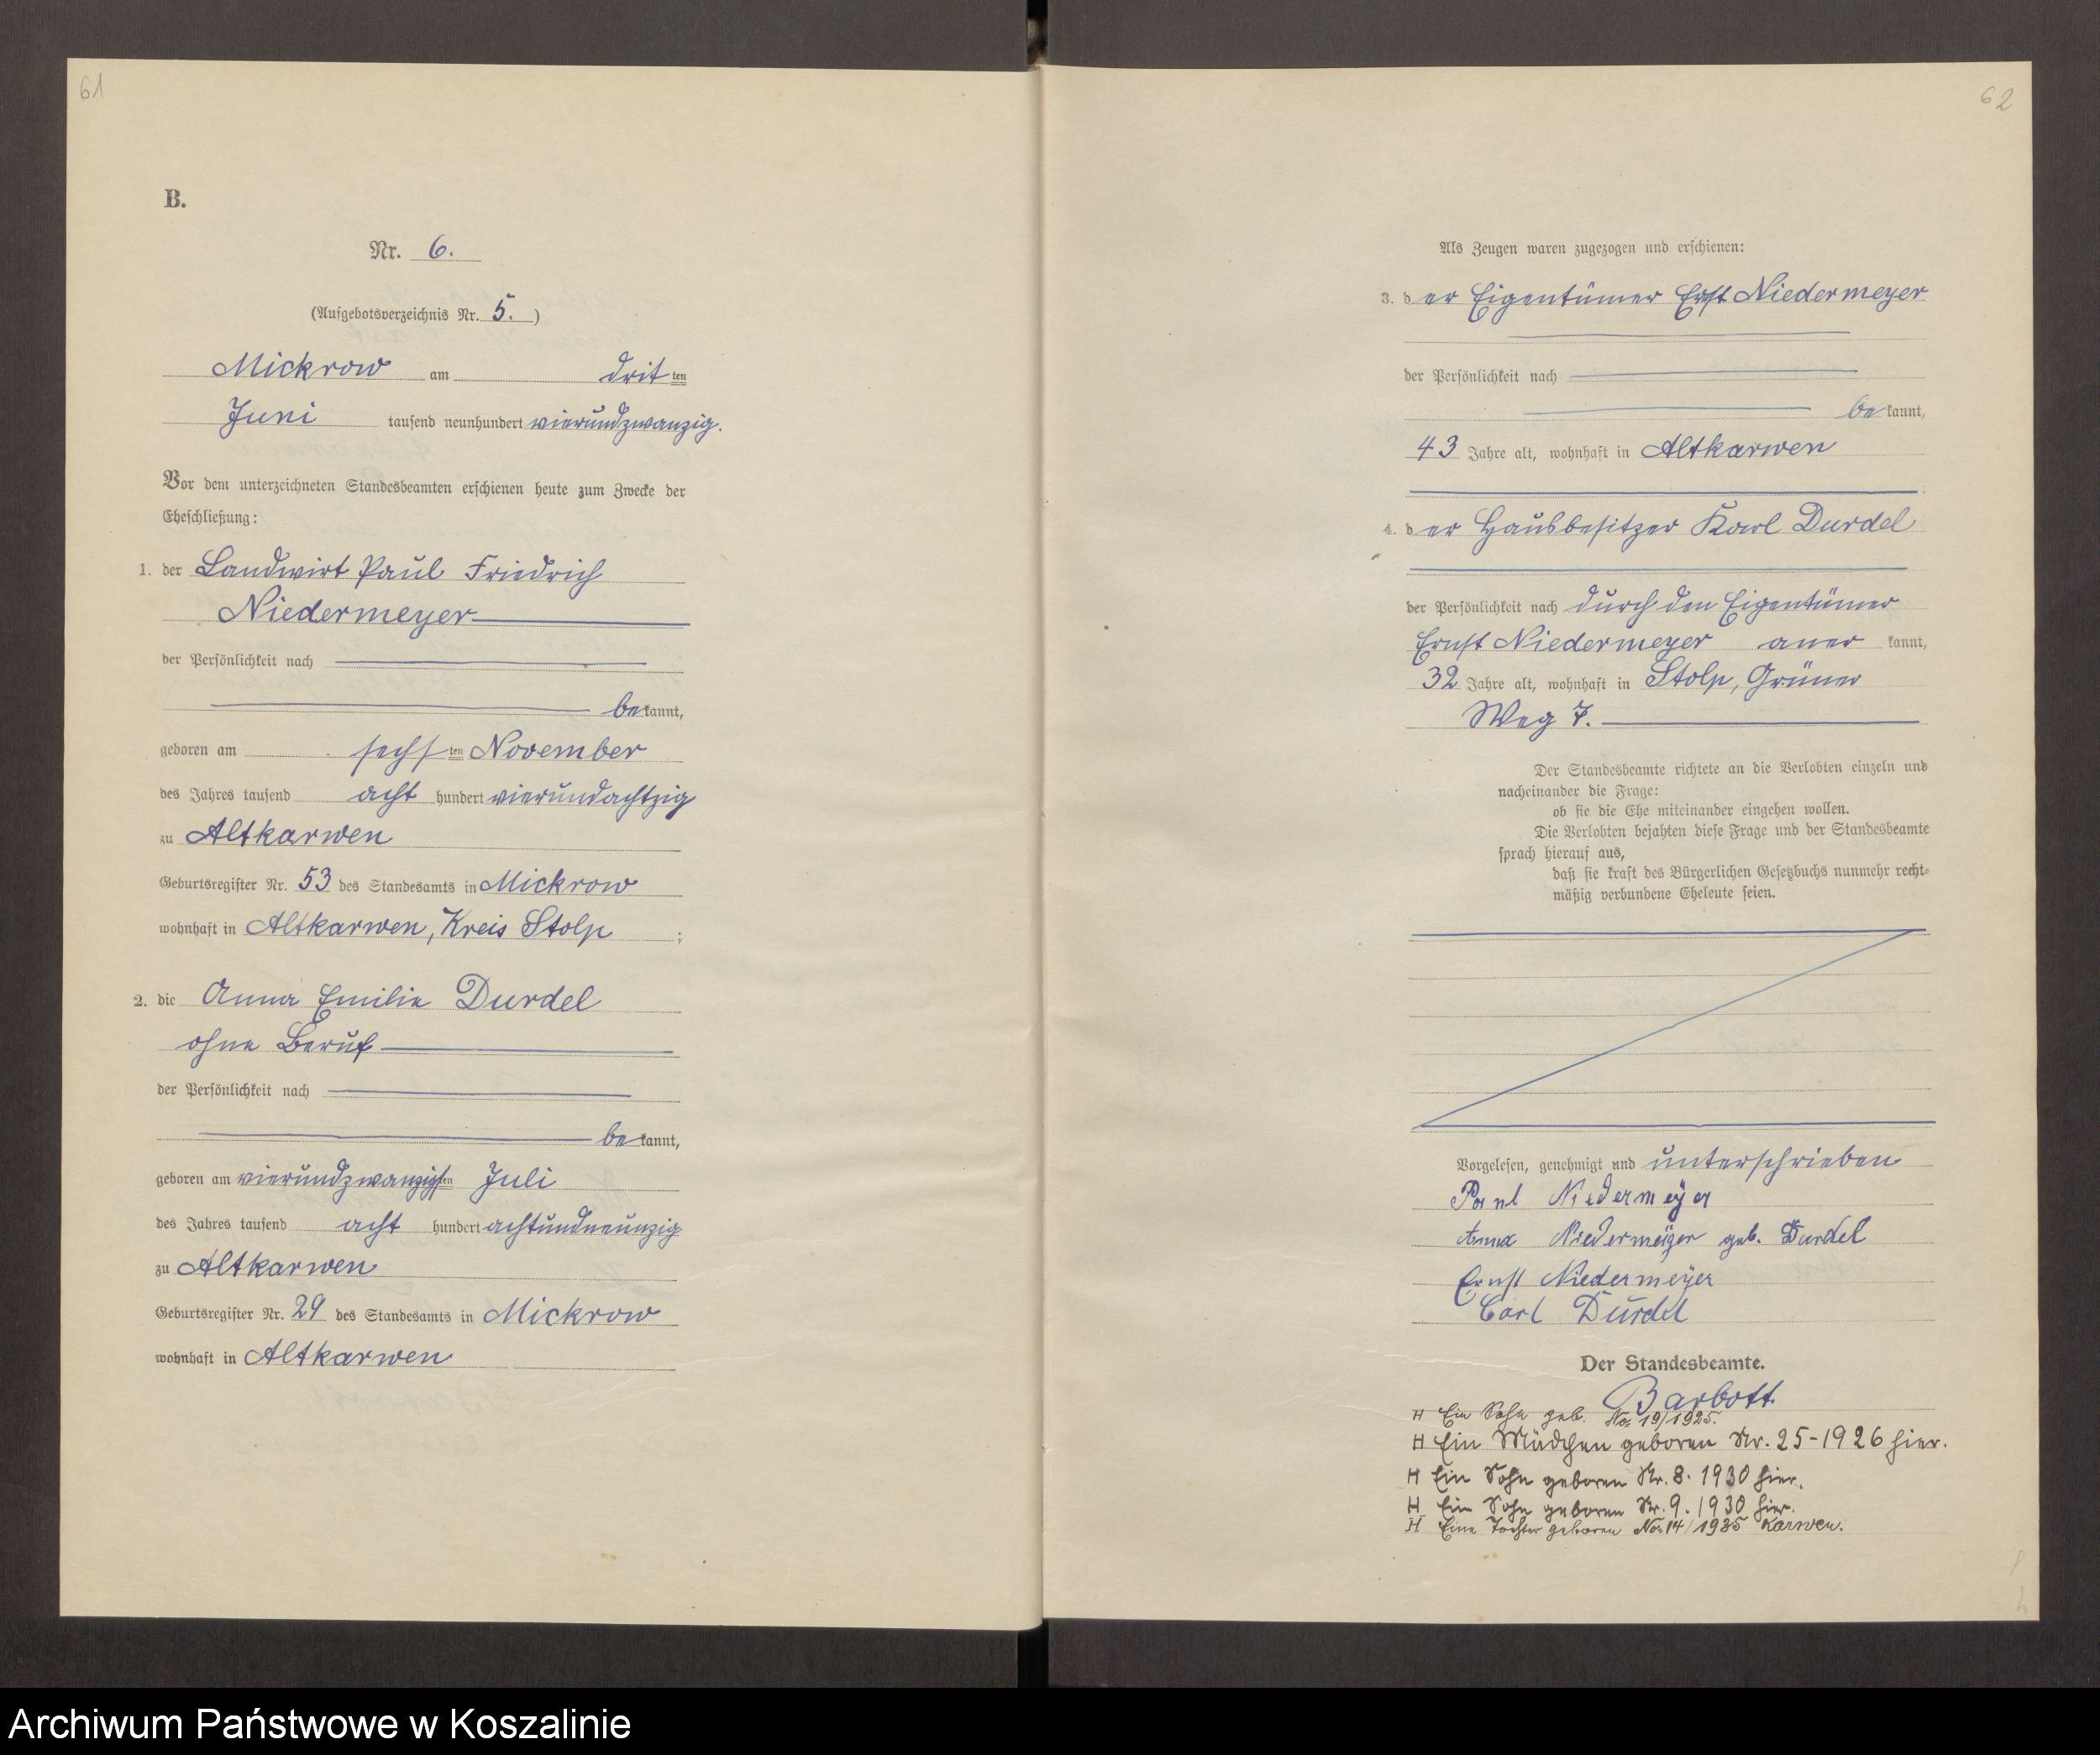 61
B.
Nr. 6.
(Aufgebotsverzeichnis Nr. 5. )
Mickrow am dritten
Juni tausend neunhundert vierundzwanzig.
Vor dem unterzeichneten Standesbeamten erschienen heute zum Zwecke der
Eheschließung:
1. der Landwirt Paul Friedrich
Niedermeyer
der Persönlichkeit nach
bekannt,
geboren am sechsten November
des Jahres tausend acht hundert vierundachtzig
zu Altkarwen
Geburtsregister Nr. 53 des Standesamts in Mickrow
wohnhaft in Altkarwen, Kreis Stolp ;
2. die Anna Emilie Durdel
ohne Beruf
der Persönlichkeit nach
bekannt,
geboren am vierundzwanzigsten Juli
des Jahres tausend acht hundert achtundneunzig
zu Altkarwen
Geburtsregister Nr. 29 des Standesamts in Mickrow
wohnhaft in Altkarwen
62
Als Zeugen waren zugezogen und erschienen:
3. der Eigentümer Ernst Niedermeyer
der Persönlichkeit nach
bekannt,
43 Jahre alt, wohnhaft in Altkarwen
4. der Hausbesitzer Karl Durdel
der Persönlichkeit nach durch den Eigentümer
Ernst Niedermeyer anerkannt,
32 Jahre alt, wohnhaft in Stolp, Grüner
Weg 7.
Der Standesbeamte richtete an die Verlobten einzeln und
nacheinander die Frage:
ob sie die Ehe miteinander eingehen wollen.
Die Verlobten bejahten diese Frage und der Standesbeamte
sprach hierauf aus,
daß sie kraft des Bürgerlichen Gesetzbuchs nunmehr recht-
mäßig verbundene Eheleute seien.
Vorgelesen, genehmigt und unterschrieben
Paul Niedermeyer
Anna Niedermeyer geb. Durdel
Ernst Niedermeyer
Carl Durdel
Der Standesbeamte.
Barbott
H Ein Sohn geb. No. 19/1925.
H Ein Mädchen geboren Nr. 25-1926 hier.
H Ein Sohn geboren Nr. 8. 1930 hier.
H Ein Sohn geboren Nr. 9. 1930 hier.
H Eine Tochter geboren No. 14/1935 Karwen.
Archiwum Państwowe w Koszalinie